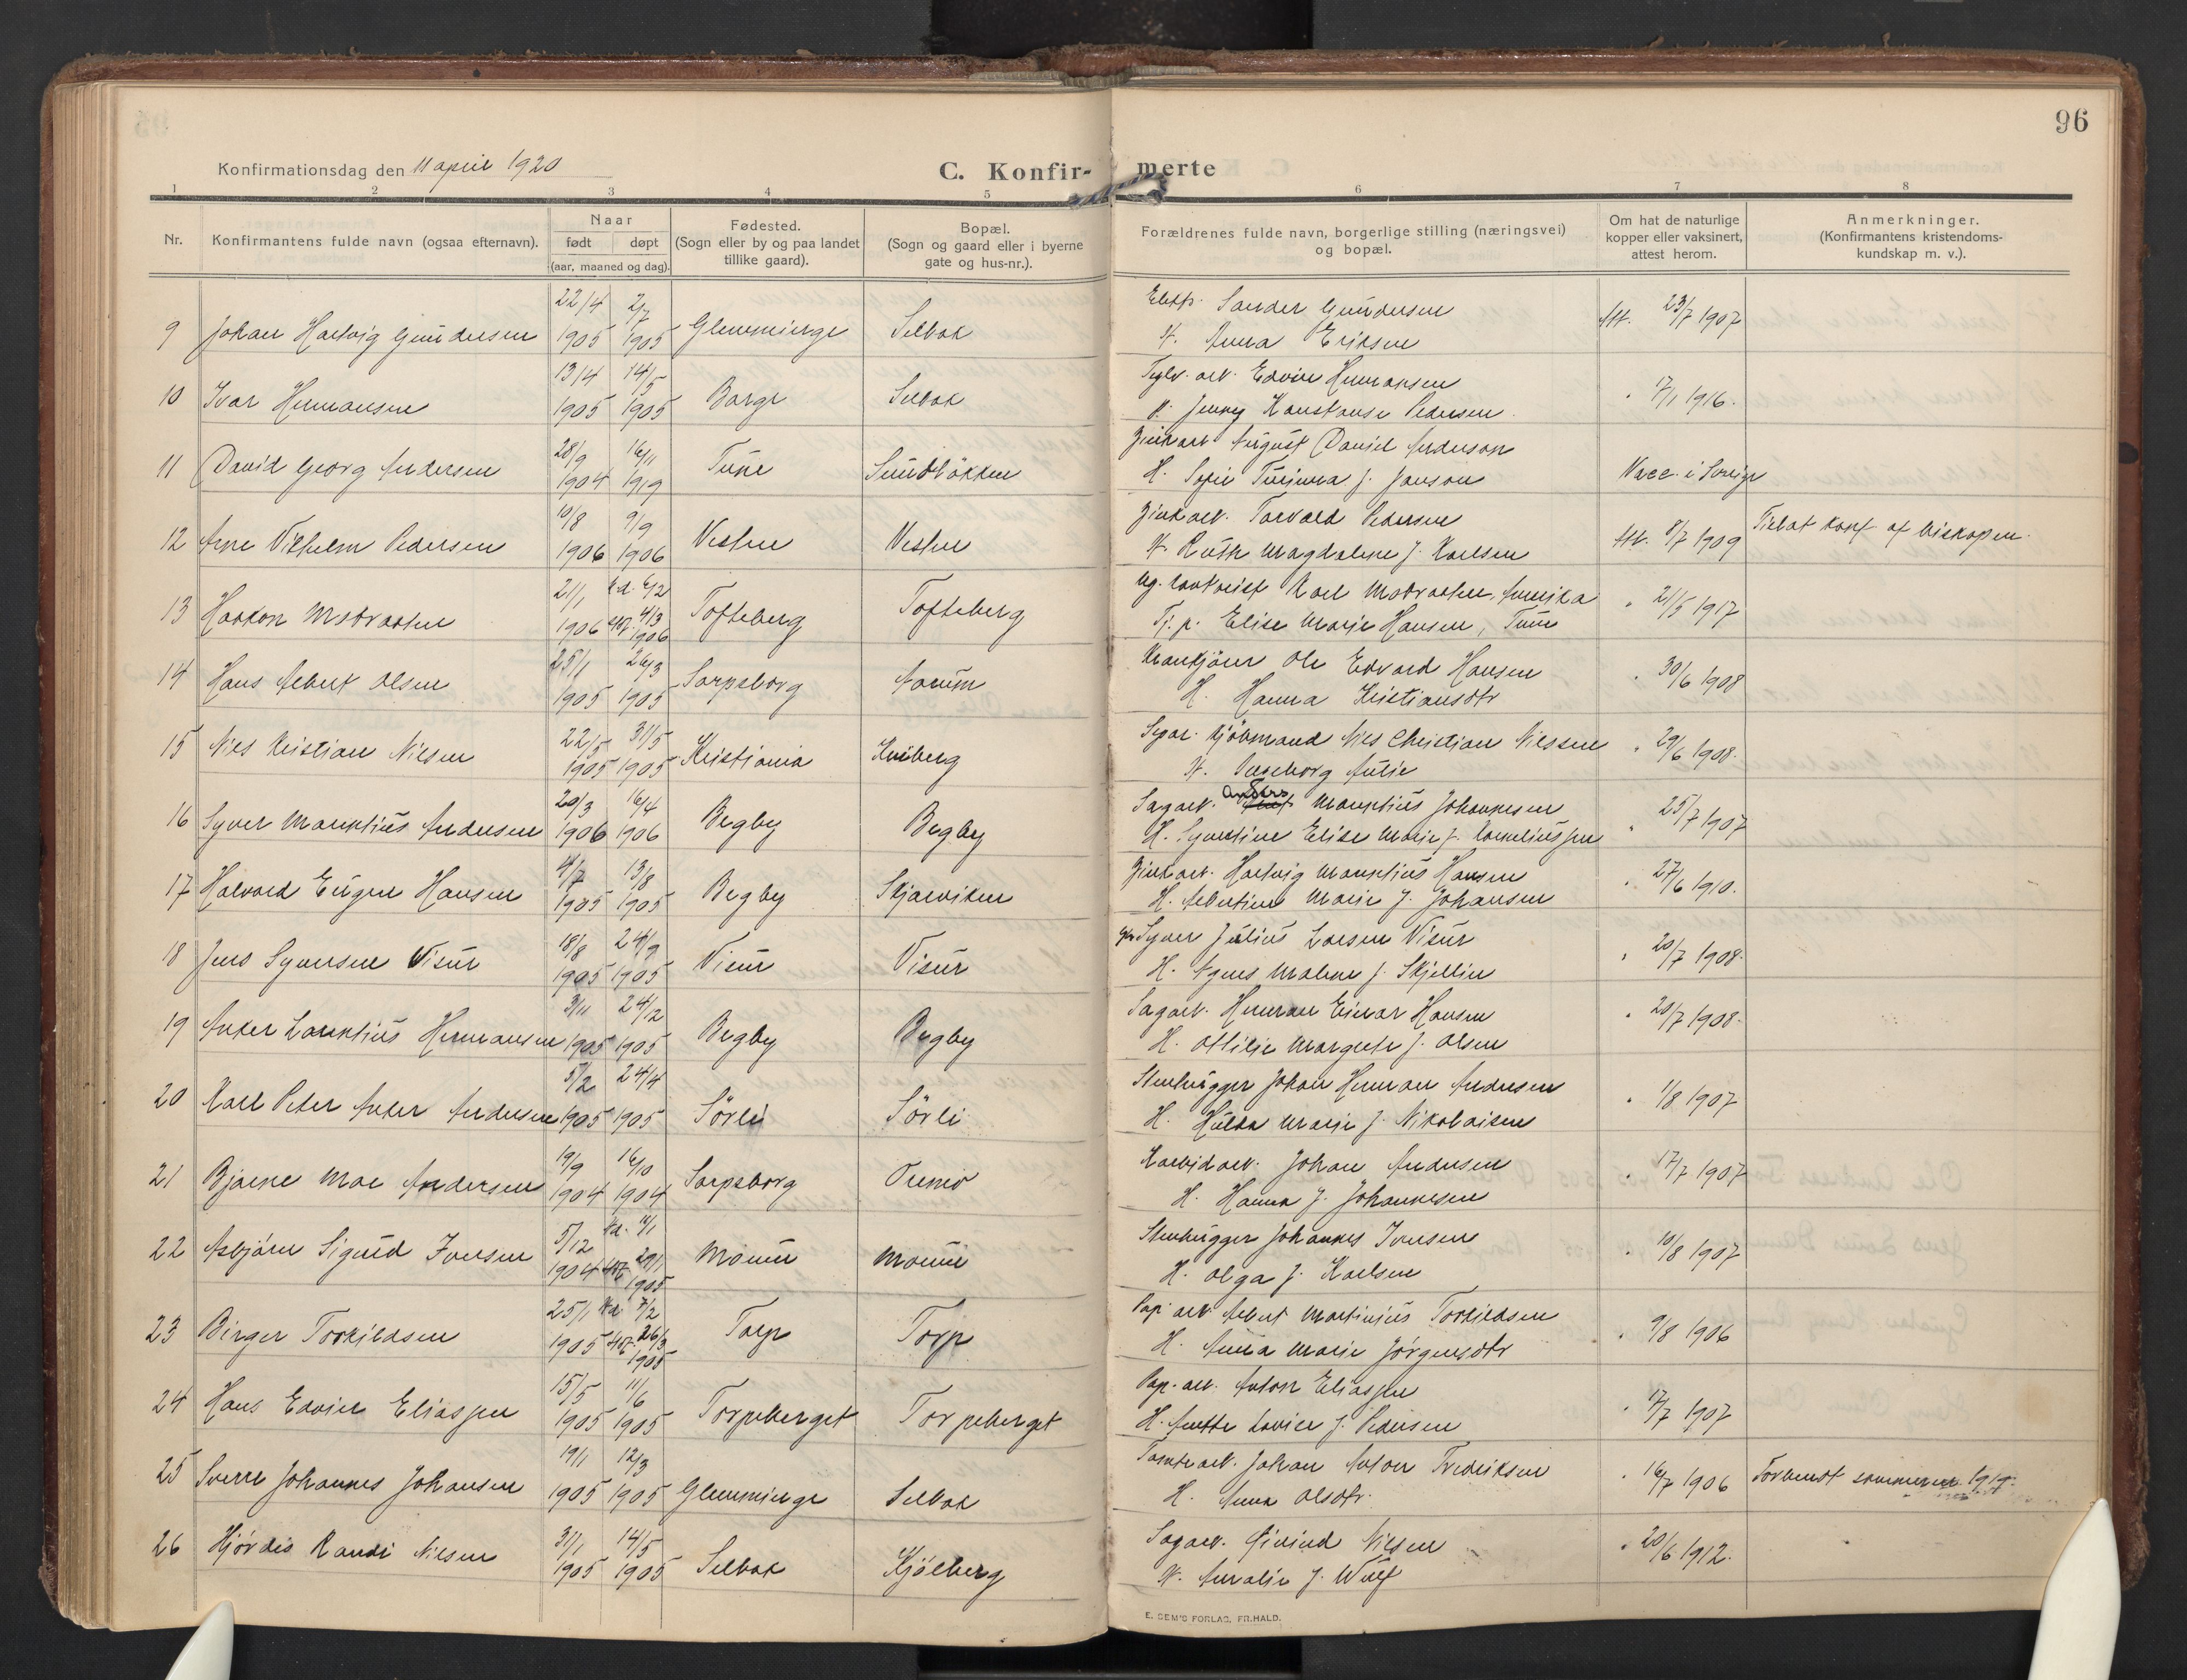 96
Konfirmationsdag den 11 april 1920
C. Konfir-merte
1 2 3 4 5 6 7 8
Nr.
Konfirmantens fulde navn (ogsaa efternavn).
Naar
født døpt
(aar, maaned og dag).
Fødested.
(Sogn eller by og paa landet
tillike gaard).
Bopæl.
(Sogn og gaard eller i byerne
gate og hus-nr.).
Forældrenes fulde navn, borgerlige stilling (næringsvei)
og bopæl.
Om hat de naturlige
kopper eller vaksinert,
attest herom.
Anmerkninger.
(Konfirmantens kristendoms-
kundskap m. v.).
22/4 2/7 Sander Gundersen
9 Johan Hartvig Gundersen 1905 1905 Glemminge Selbak H. Anna Eriksen Att. 23/7 1907
13/4 14/5 Teglv. arb. Edvin Hermansen
10 Ivar Hermansen 1905 1905 Borge Selbak H. Jenny Konstanse Pedersen 17/1 1916.
28/9 16/11 Zinkarb August David Anderson
11 David Georg Andersen 1904 1919 Tune Sundløkken H. Sofie f. Janson Vacc. i Sverige
10/8 9/9 Zinkarb. Torvald Pedersen
12 Arne Vilhelm Pedersen 1906 1906 Visten Visten H. Ruth Magdalene f. Karlsen Att. 8/7 1909 Tillat konf. af biskopen.
21/1 kd. 6/2 Ug. Karl Modraaten, Amerika
13 Haakon Modraaten 1906 4/3 1906 Tofteberg Tofteberg Tj.p. Elise Marie Hansen, Tune 21/5 1917
25/1 26/3 Ole Edvard Hansen
14 Hans Albert Olsen 1905 1905 Sarpsborg Aarum H. Hanna Kristiansdtr 30/6 1908
22/5 31/5 Kjøbmand Nils Christian Nilssen
15 Nils Kristian Nilsen 1905 1905 Kristiania H. Julie 29/6 1908.
20/3 16/4 Sagarb. Anders Mauritius Johannesen
16 Syver Mauritius Andersen 1906 1906 Begby Begby H. Syvertine Elise Marie f. Korneliussen 25/7 1907
4/7 13/8 Zinkarb. Hartvig Mauritius Hansen
17 Halvard Eugen Hansen 1905 1905 Begby Skjærviken H. Albertine Marie f. Johansen 27/6 1910.
18/8 24/9 Syver Julius Larsen Visur
18 Jens Syversen Visur 1905 1905 Visur Visur H. Agnes Malene f. Skjellin 20/7 1908.
3/11 24/12 Sagarb. Herman Einar Hansen
19 Anker Laurentius Hermansen 1905 1905 Begby Begby H. Ottilie Margrete f. Olsen 20/7 1908.
5/2 24/4 Stenhugger Johan Herman Andersen
20 Karl Peter Anker Andersen 1905 1905 Sørli Sørli H. Hulda Marie f. Nikolaisen 1/8 1907
19/9 16/10 Karbidarb. Johan Andersen
21 Bjarne Moe Andersen 1904 1904 Sarpsborg H. Hanna f. Johannesen 17/7 1907
5/12 kd. Stenhugger Johannes Iversen
22 Asbjørn Sigurd Iversen 1904 29/1 1905 Moum Moum H. Olga f. Karlsen 10/8 1907
25/1 kd. 7/2 Pap. arb. Albert Martinius Torkildsen
23 Birger Torkildsen 1905 26/3 1905 Torp Torp H. Anna Marie Jørgensdtr 9/8 1906
15/5 11/6 Pap. arb. Anton Eliassen
24 Hans Edvin Eliassen 1905 1905 Torpeberget Torpeberget H. Anette Lovise f. Pedersen 17/7 1907
19/1 12/3 Tomtearb. Johan Anton Fredriksen
25 Sverre Johannes Johansen 1905 1905 Glemminge Selbak H. Anna Olsdtr. 16/7 1906 Forberedt sommeren 1919.
31/1 14/5 Sagarb. Øivind Nilsen
26 Hjørdis Randi Nilsen 1905 1905 Selbak Kjølberg H. Amalie f. Wulf 20/6 1912.
E. SEM'S FORLAG, FR.HALD.